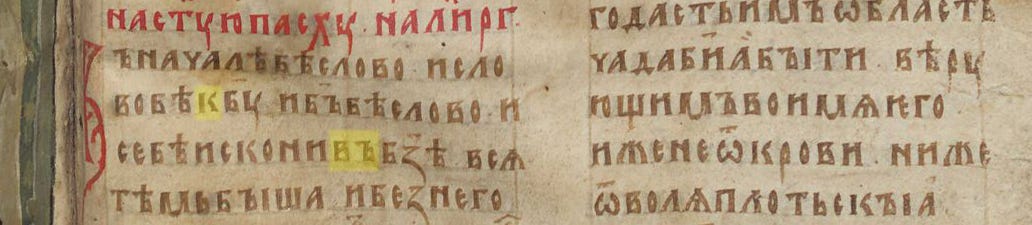 настꙋюпасхꙋ · налирг ·
Въначалѣбѣслово · исло
вобѣкбꙋ · ибъбѣслово · и
себѣисконивъбзѣ · всѧ
тѣмьбъіша ибезнего
годастьимъѡбласть
чадабиꙗбъіти · вѣрꙋ
ющимъвоимѧѥго
иженеѿкрови · ниже
ѿволѧплотьскъіꙗ